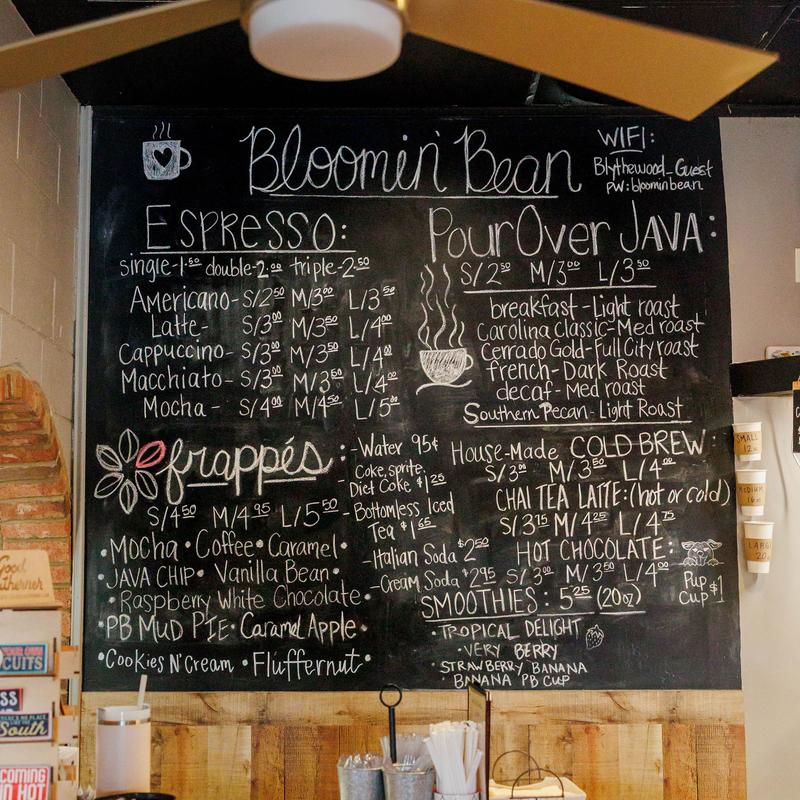 Bloomin' Bean
WIFI:
Blythewood_Guest
pw: bloominbean
ESPRESSO:
single-1.50 double-2.00 triple-2.50
Americano- S/2.50 M/3.00 L/3.50
Latte- S/3.00 M/3.50 L/4.00
Cappuccino- S/3.00 M/3.50 L/4.00
Macchiato- S/3.00 M/3.50 L/4.00
Mocha- S/4.00 M/4.50 L/5.00
Pour Over JAVA:
S/2.50 M/3.00 L/3.50
breakfast-Light roast
Carolina Classic-Med roast
Cerrado Gold-Full City roast
french-Dark Roast
decaf-Med roast
Southern Pecan-Light Roast
frappés:
S/4.50 M/4.95 L/5.50
•Mocha •Coffee •Caramel•
•JAVA CHIP• Vanilla Bean•
•Raspberry White Chocolate•
•PB MUD PIE• Caramel Apple•
•Cookies N' Cream •Fluffernut•
-Water 95¢
-Coke, sprite,
Diet Coke $1.25
-Bottomless Iced
Tea $1.65
-Italian Soda $2.50
-Cream Soda $2.95
House-Made COLD BREW:
S/3.00 M/3.50 L/4.00
CHAI TEA LATTE: (hot or cold)
S/3.75 M/4.25 L/4.75
HOT CHOCOLATE:
S/3.00 M/3.50 L/4.00
Pup
Cup $1
SMOOTHIES: 5.25 (20oz)
•TROPICAL DELIGHT
•VERY BERRY
•STRAWBERRY BANANA
•BANANA PB CUP
SMALL
12
MEDIUM
16
LARGE
20
Good
CUITS
South
COMING
IN HOT